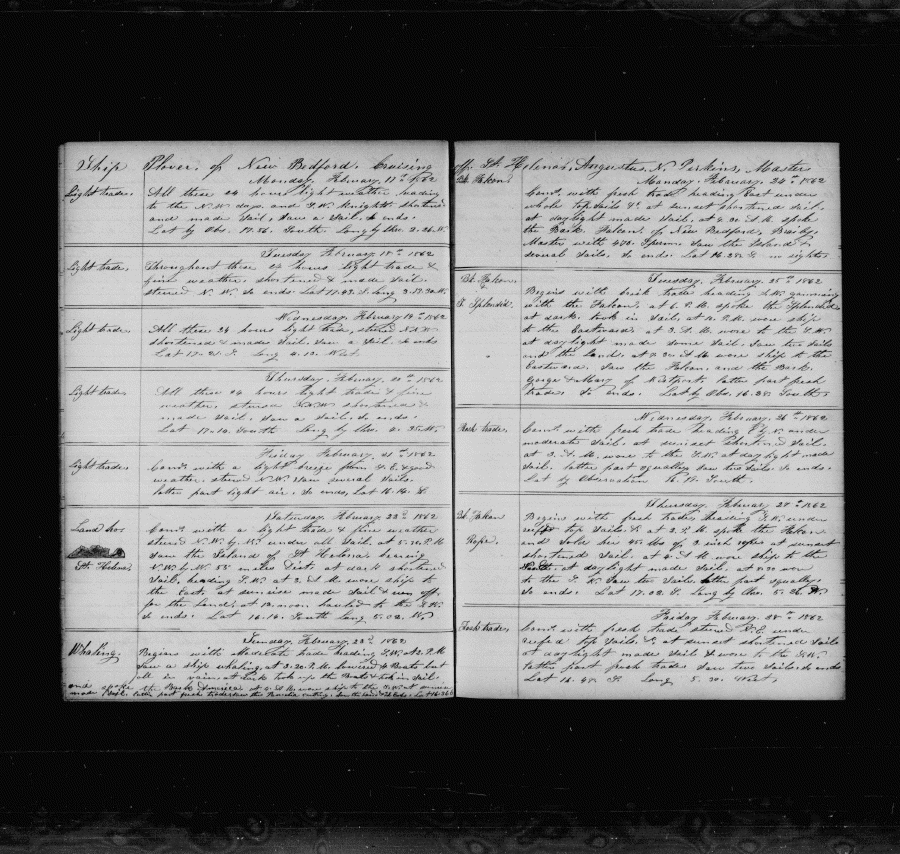 Ship Plover, of New Bedford, Cruising
Monday, February, 17th 1862
Light trade. All these 24 hours light weather, heading
to the N.W. days, and S.W. Knights shortened
and made Sail, Saw a Sail. So ends.
Lat by Obs. 17.56. South. Long by Chro. 2.26. W.
Tuesday February 18th 1862
Light trade. Throughout these 24 hours light trade &
fine weather. Shortened & made Sail.
stered N. W. So ends Lat 17.43. S. Long 3.13.30. W.
Wednesday. February 19th 1862
Light trade. All these 24 hours light trade, stered N.N.W
shortened & made Sail. Saw a Sail. So ends
Lat 17-21. S. Long 4.12. West.
Thursday. February. 20th 1862.
Light trade. All these 24 hours light trade & fine
weather. stered N.N.W. shortened &
made Sail. Saw a Sail. So ends.
Lat 17-10. South Long by Chro.
Friday February 21st 1862
Light trade. Com. with a light breeze from S.E. & good
weather. stered N.W. Saw several Sails.
latter part light air. So ends, Lat 16.14. S.
Saturday. February. 22d 1862
Land ho. Com. with a light trade & fine weather
St. Helena. stered N.W. by W. under all Sail. at 5.30. P.M
Saw the Island of St Helena, bearing
N.W. by W. 55 miles Dist. at dark shortened
Sail, heading S.W. at 2. A M wore ship to
the East, at sunrise made Sail & run off,
for the Land, at 12. noon. hauled to the S.W.
So ends. Lat 16.16. South Long 5.02. W.
Sunday. February. 23d 1862
Whaling. Begins with Moderate trade heading S.W. At 2. P.M
Saw a ship whaling, at 3.30. P.M. lowered 4 Boats but
all in vain, at dark took up the Boats & took in Sail.
and spoke the Bark America at 2. A M wore ship to the S.W. at sunrise
made Sail. latter part fresh trade
off, St. Helena, Augustus, N. Perkins, Master
Monday. February. 24th 1862
Bk. Falcon. Com. with fresh trade, heading East under
whole topsails &c. at sunset shortened Sail.
at daylight made Sail. at 8.30 A M. spoke
the Bark. Falcon. of New Bedford,
Master with 470. Sperm. Saw the Island &
several Sails. So ends. Lat 16.25. S. in sight.
Tuesday. February. 25th 1862
Bk. Falcon. Begins with brisk trade heading S.W. gamming
S. Splendid. with the Falcon. at 5 P.M spoke the Splendid
at dark. took in Sail. at 10. P.M. wore ship
to the Eastward, at 3. A M. wore to the S.W.
at daylight made some Sail. Saw two Sails
and the Land. at 8.30 A M wore ship to the
Eastward. Saw the Falcon. and the Bark.
George & Mary of Westport, latter part fresh
trade. So ends. Lat by Obs. 16.38. South.
Wednesday. February. 26th 1862.
Fresh trade. Com. with fresh trade heading S.W. under
moderate Sail. at sunset shortened Sail.
at 2. A M. wore to the S.W. at day light made
Sail. latter part squally Saw two Sails. So ends.
Lat by Observation 16.17. South.
Thursday. February. 27th 1862
Bk. Falcon Begins with fresh trade, heading S.W. under
Rope. reefed top Sails. & at 2. P.M. spoke the Falcon
and sold her 45 lbs of 2 inch rope. at sunset
shortened Sail. at 2. A M wore ship to the
South. at daylight made Sail. at 8.30 wore
to the S. W. Saw two Sails. latter part squally,
So ends. Lat 17.02. S. Long by Chro. 5.26. W.
Friday February. 28th 1862
Fresh trade. Com. with fresh trade, stered N.E. under
reefed top Sails. & at sunset shortened Sails
at daylight made Sail & wore to the S.W.
latter part fresh trades saw two Sails. So ends
Lat 16.47. S. Long 5.30. West.